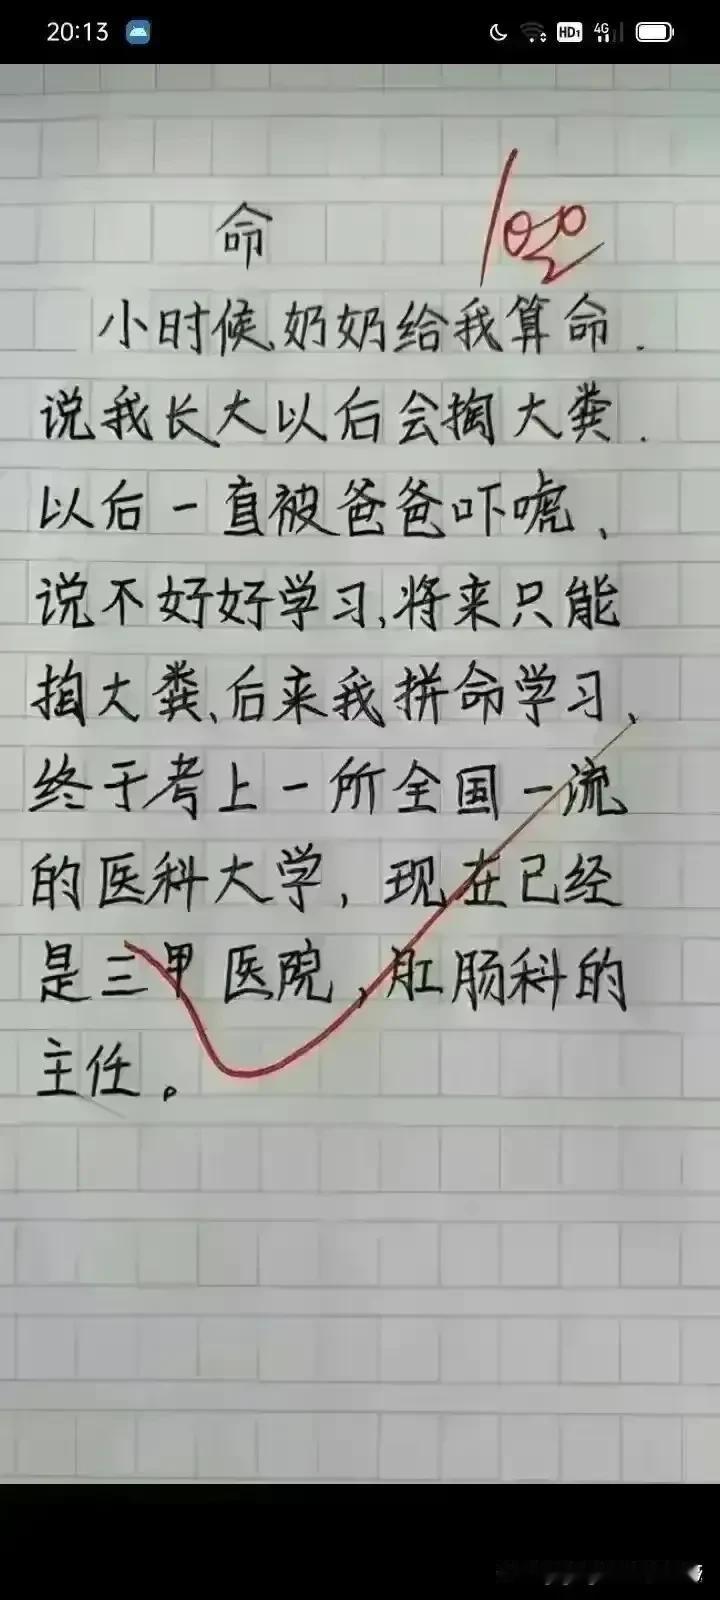 20:13
HD1 4G
命
100
小时候,奶奶给我算命.
说我长大以后会掏大粪.
以后一直被爸爸吓唬、
说不好好学习,将来只能
掏大粪、后来我拼命学习、
终于考上一所全国一流
的医科大学，现在已经
是三甲医院，肛肠科的
主任。